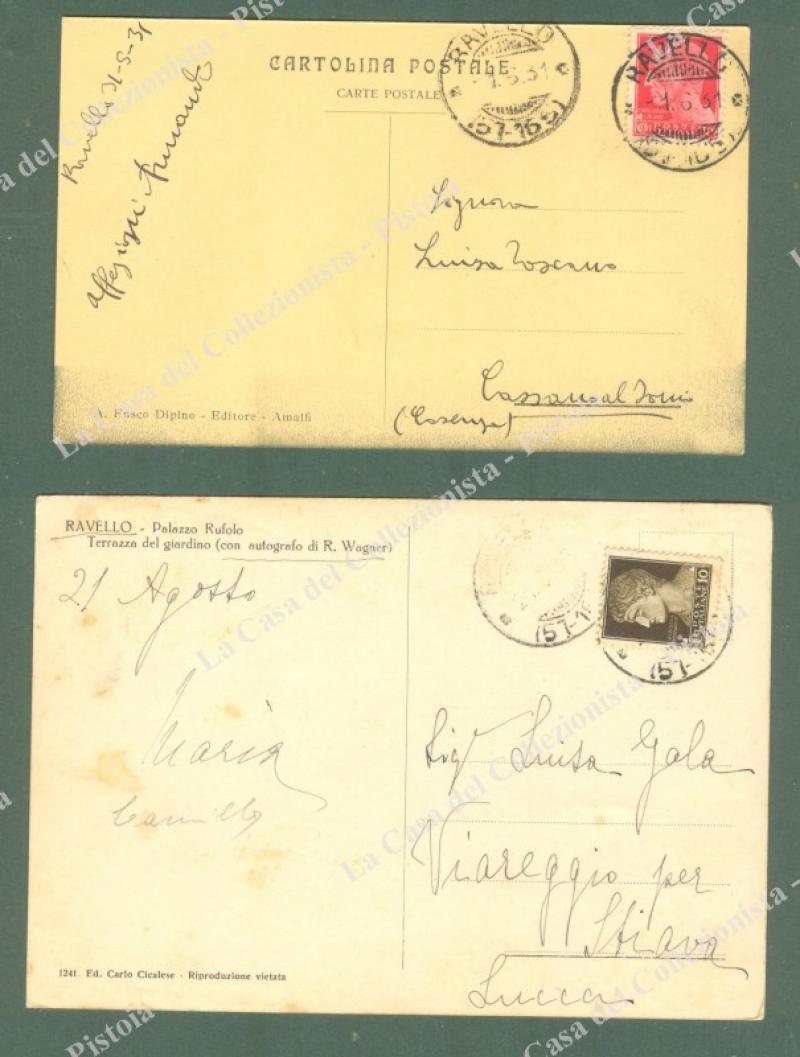 CARTOLINA POSTALE
CARTE POSTALE
RAVELLO
-1.6.31
(57-165)
RAVELLO
-1.6.31
Ravello 31-5-31
affezioni Armando
Signora
Luisa Toscano
Cassano al Jonio
(Cosenza)
A. Fusco Dipino - Editore - Amalfi
RAVELLO - Palazzo Rufolo
Terrazza del giardino (con autografo di R. Wagner)
21 Agosto
Maria
Camillo
10
POSTE
ITALIANE
(57-16
(57-
Sig Luisa Gala
Viareggio per
Stiava
Lucca
1241. Ed. Carlo Cicalese - Riproduzione vietata
La Casa del Collezionista - Pistoia